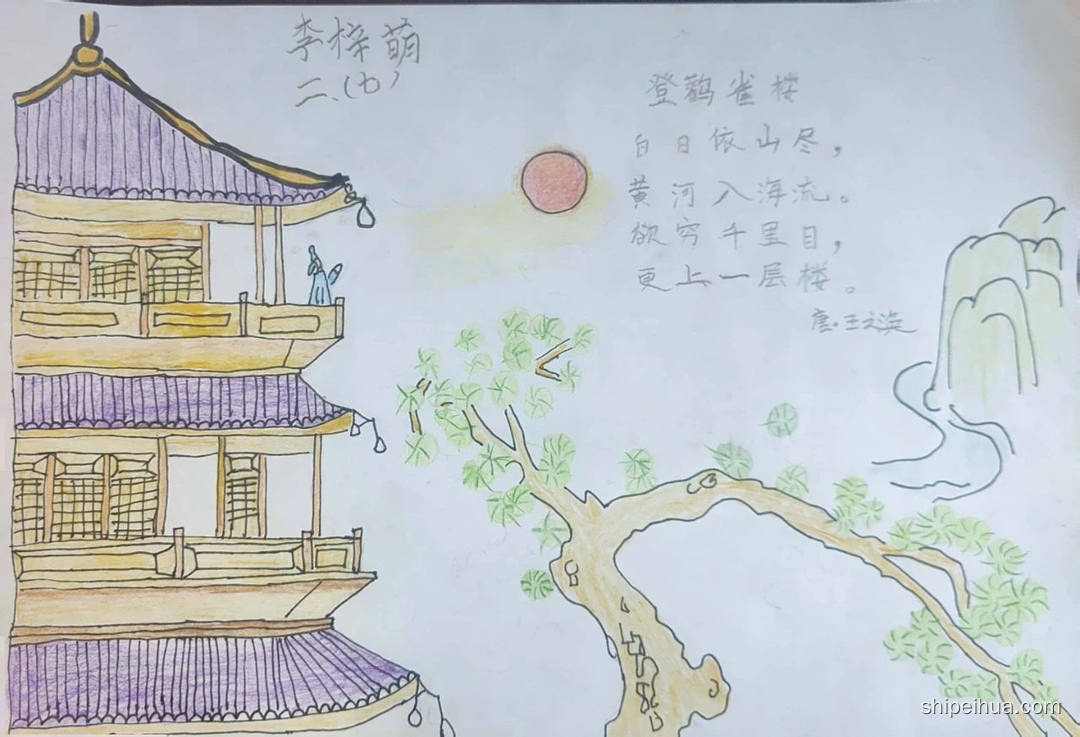 李梓萌
二、(七)
登鹳雀楼
白日依山尽，
黄河入海流。
欲穷千里目，
更上一层楼。
唐·王之涣
shipeihua.com